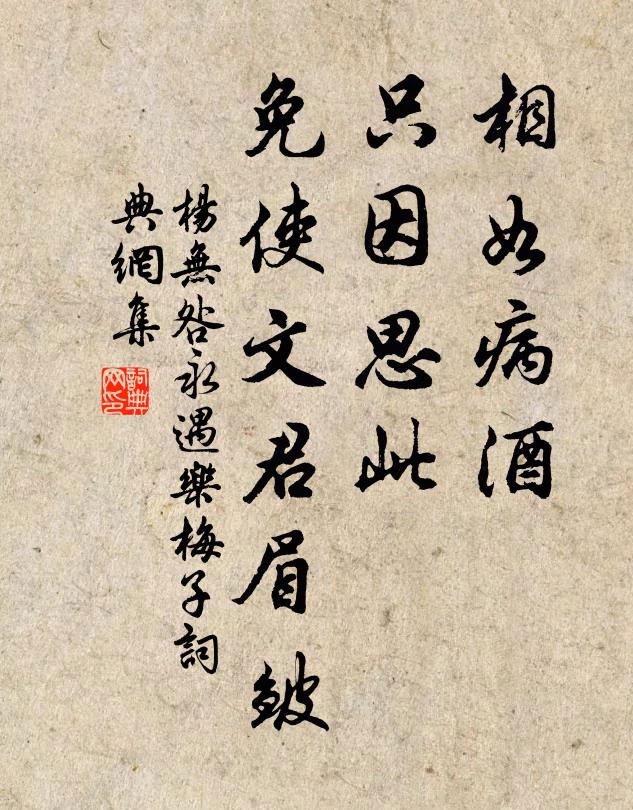 相如病酒
只因思此
免使文君眉皺
楊無咎永遇樂梅子詞
典網集
詞典網印